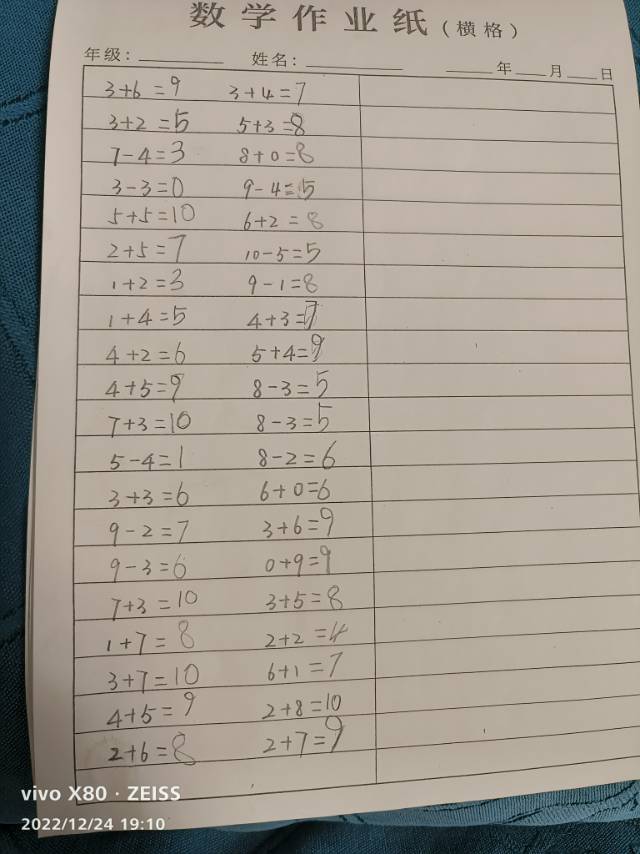 数学作业纸(横格)
年级: 姓名: 年 月 日
3+6=9 3+4=7
3+2=5 5+3=8
7-4=3 8+0=8
3-3=0 9-4=5
5+5=10 6+2=8
2+5=7 10-5=5
1+2=3 9-1=8
1+4=5 4+3=7
4+2=6 5+4=9
4+5=9 8-3=5
7+3=10 8-3=5
5-4=1 8-2=6
3+3=6 6+0=6
9-2=7 3+6=9
9-3=6 0+9=9
7+3=10 3+5=8
1+7=8 2+2=4
3+7=10 6+1=7
4+5=9 2+8=10
2+6=8 2+7=9
vivo X80 · ZEISS
2022/12/24 19:10